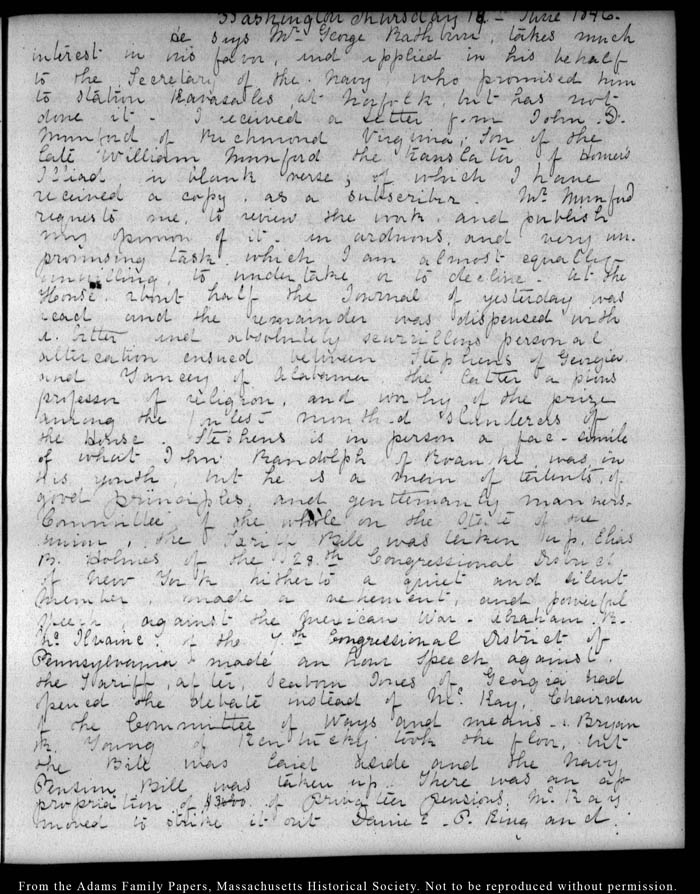 Washington Thursday 18th June 1846.
He says Mr George Rathbun, takes much
interest in his favor, and applied in his behalf
to the Secretary of the Navy who promised him
to station at Norfolk, but has not
done it - I received a Letter from John D.
Munford of Richmond Virginia, Son of the
late William Munford the translator of Homer's
Illiad in blank verse; of which I have
received a copy, as a subscriber. Mr Munford
requests me, to review the work, and publish
my opinion of it - an arduous, and very un-
promising task, which I am almost equally
unwilling, to undertake or to decline. At the
House, about half the Journal of yesterday was
read and the remainder was dispensed with
A bitter and absolutely scurrilous personal
altercation ensued between Stephens of Georgia
and Yancey of Alabama, the latter a pious
professor of religion, and worthy of the prize
among the foulest mouth-d slanderers of
the House. Stephens is in person a fac-simile
of what John Randolph of Roanoke, was in
his youth, but he is a man of talents, of
good principles, and gentlemanly manners-
Committee of the whole on the State of the
union, the Tariff Bill was taken up. Elias
B. Holmes of the 28th Congressional District
of New York hitherto a quiet and silent
member, made a vehement, and powerful
speech, against the Mexican War - Abraham R.
McIlvaine, of the 7th Congressional District of
Pennsylvania made an hour speech against
the Tariff, after, Seaborn Jones of Georgia had
opened the debate instead of McKay, Chairman
of the Committee of Ways and means - Bryan
R. Young of Kentucky took the floor, but
the Bill was laid aside and the Navy
Pension Bill was taken up. There was an ap
propriation of $3000 of privateer pensions, McKay
moved to strike it out Daniel P. King and
From the Adams Family Papers, Massachusetts Historical Society. Not to be reproduced without permission.